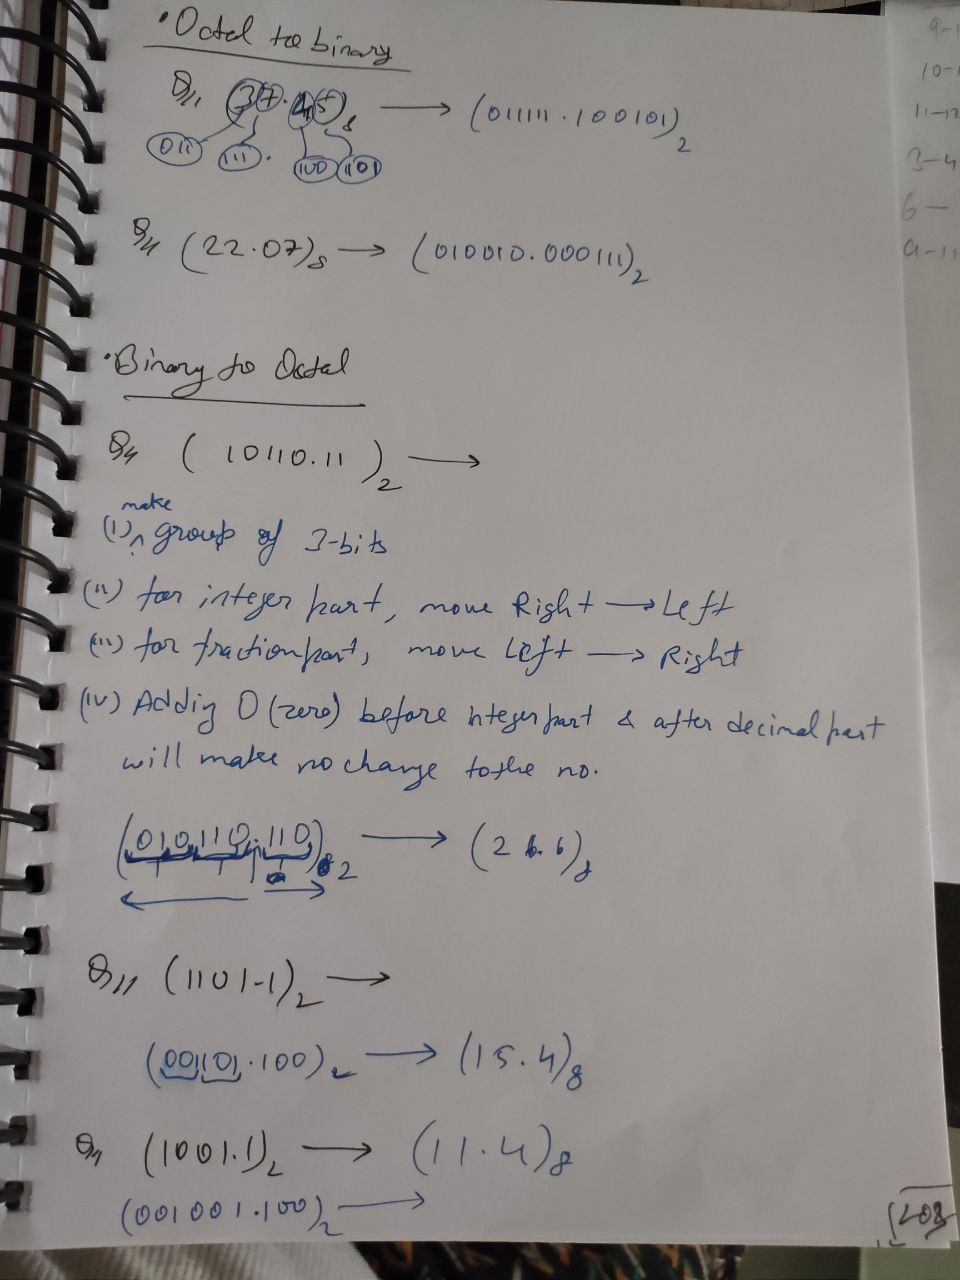 • Octal to binary
Q// (37.45)8 → (011111.100101)2
011 111 . 100 101
Q// (22.07)8 → (010010.000111)2
• Binary to Octal
Q// (10110.11)2 →
make
(i) ^ group of 3-bits
(ii) for integer part, move Right → Left
(iii) for fraction part, move Left → Right
(iv) Adding 0 (zero) before integer part & after decimal part
will make no change to the no.
(010110.110)2 → (26.6)8
Q// (1101.1)2 →
(001101.100)2 → (15.4)8
Q// (1001.1)2 → (11.4)8
(001001.100)2 →
9-1
10-
11-12
3-4
6-
9-11